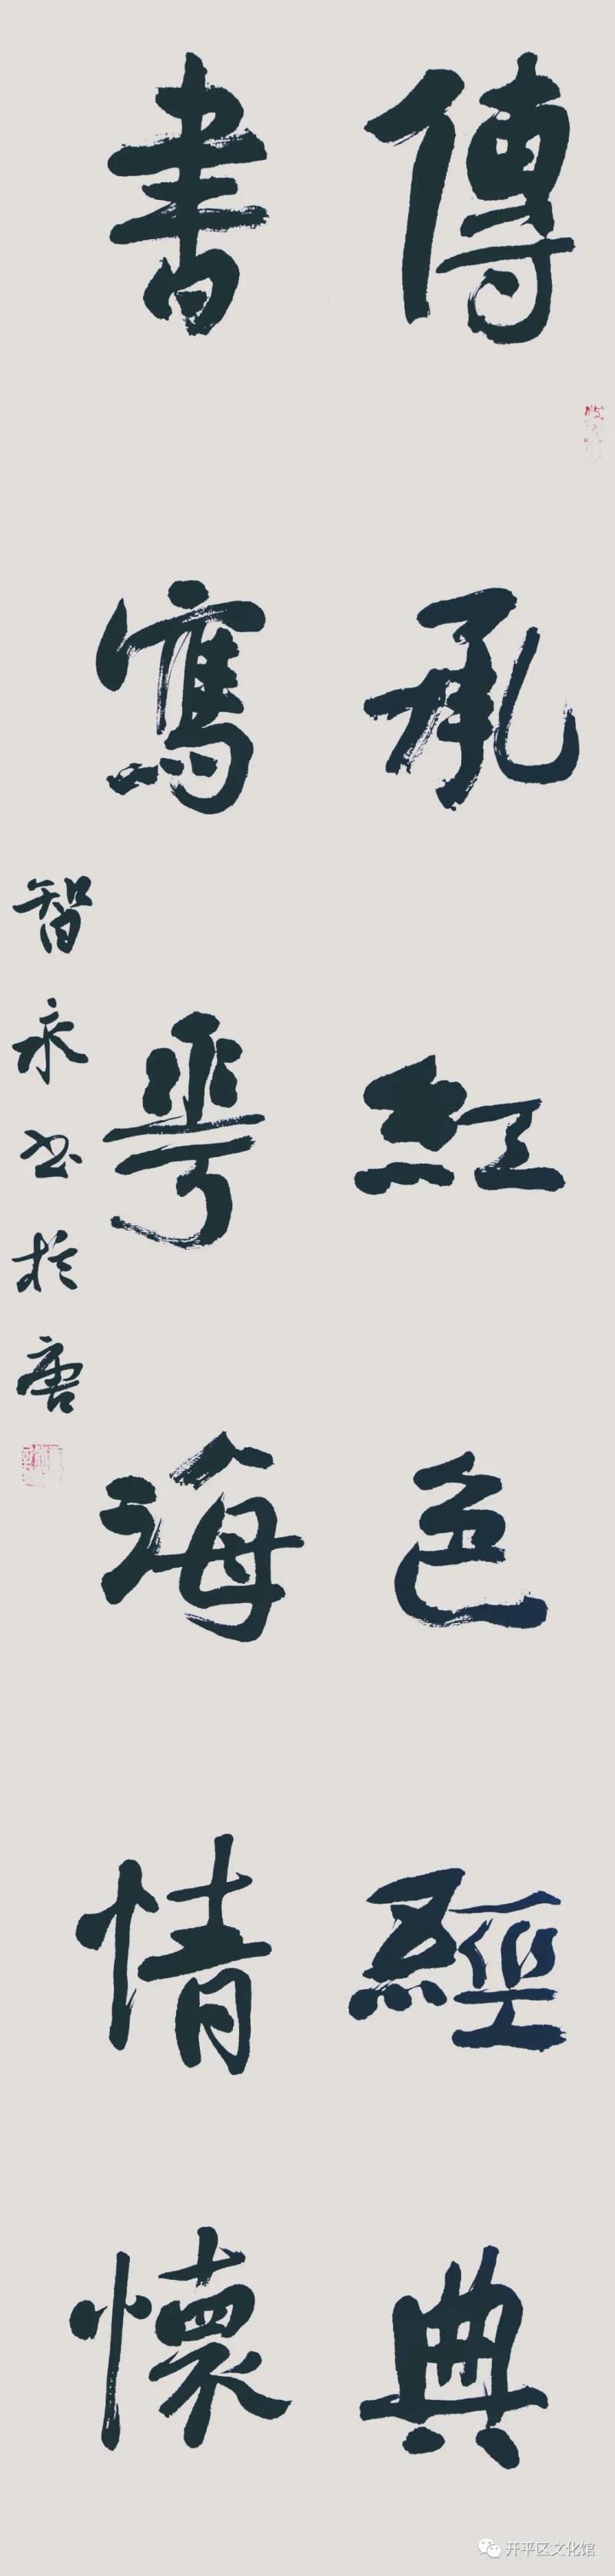 傳承紅色經典
書寫華海情懷
智永书於唐
开平区文化馆